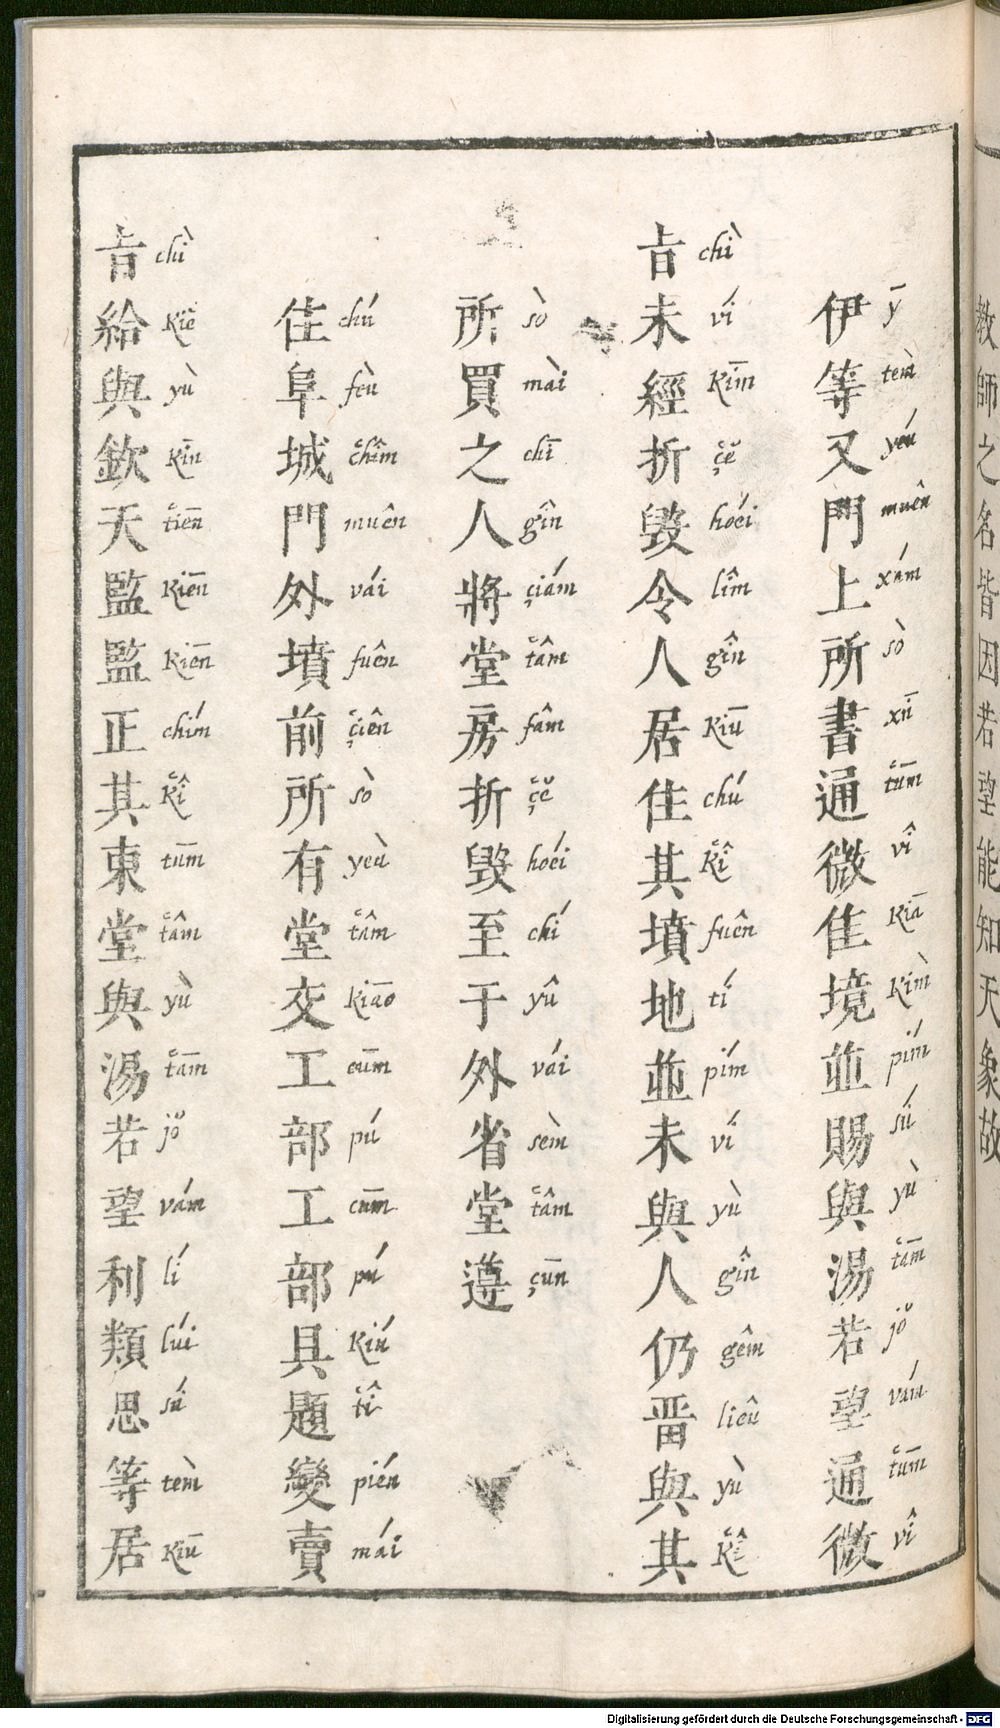 教師之名皆因若望能知天象故
伊等又門上所書通微佳境並賜與湯若望通微
ȳ tem̀ yeú muên xám sò xū tūm vî Kiā Kim̀ pím sú yù tām jǒ vám tūm vî
旨未經折毀令人居住其墳地並未與人仍畱與其
chì ví Kīm çě hoéi lîm gîn Kiū chú Kî fuên tí pím ví yù gîn gêm liêu yù Kî
所買之人將堂房折毀至于外省堂遵
sò mài chī gîn çiám tâm fâm çě hoéi chí yû vái sèm tâm çūn
住阜城門外墳前所有堂交工部工部具題變賣
chú feù chîm muên vái fuên çiên sò yeù tâm Kiāo cūm pú cūm pú Kiú tî pién mái
旨給與欽天監監正其東堂與湯若望利類思等居
chì Kiě yù Kīn tiēn Kiēn Kiēn chím Kî tūm tâm yù tām jǒ vám lí lúi sú tem̀ Kiū
Digitalisierung gefördert durch die Deutsche Forschungsgemeinschaft - DFG